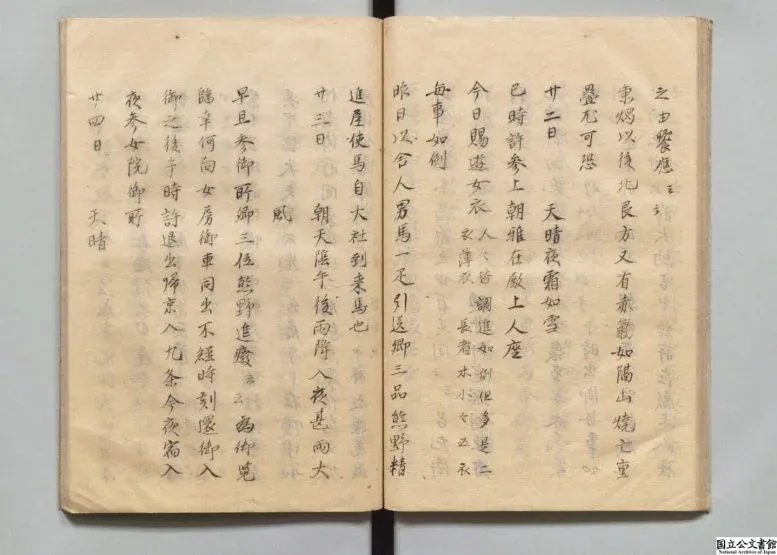 之由饗應云々
秉燭以後北艮方又有赤氣如隔山燒亡重
疊尤可恐
廿二日 天晴夜霜如雪
巳時許参上朝雅在殿上人座
今日賜遊女衣 人々皆調進如例但多是二
衣薄衣長者木小々五衣
每事如例
昨日以舍人男馬一疋引送卿三品熊野精
進屋使馬自大社到来馬也
廿三日 朝天陰午後雨降入夜甚雨大
風
早旦参御所卿三位熊野進癈云々為御覧
臨幸何向女房御車同出不經時刻還御入
御之後午時許退出帰京入九条今夜宿入
夜参女院御所
廿四日 天晴
国立公文書館
National Archives of Japan